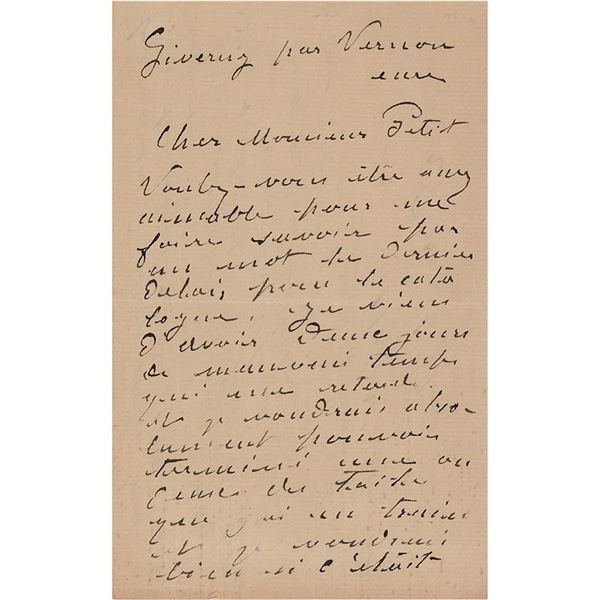 Giverny par Vernon
eure
Cher Monsieur Petit
Voulez-vous être assez
aimable pour me
faire savoir par
un mot le dernier
delais pour le cata
logue, je viens
d'avoir deux jours
de mauvais temps
qui me retarde
et je voudrais abso-
lument pouvoir
terminé une ou
deux des toiles
que j'ai en train
et je voudrais
bien si c'était